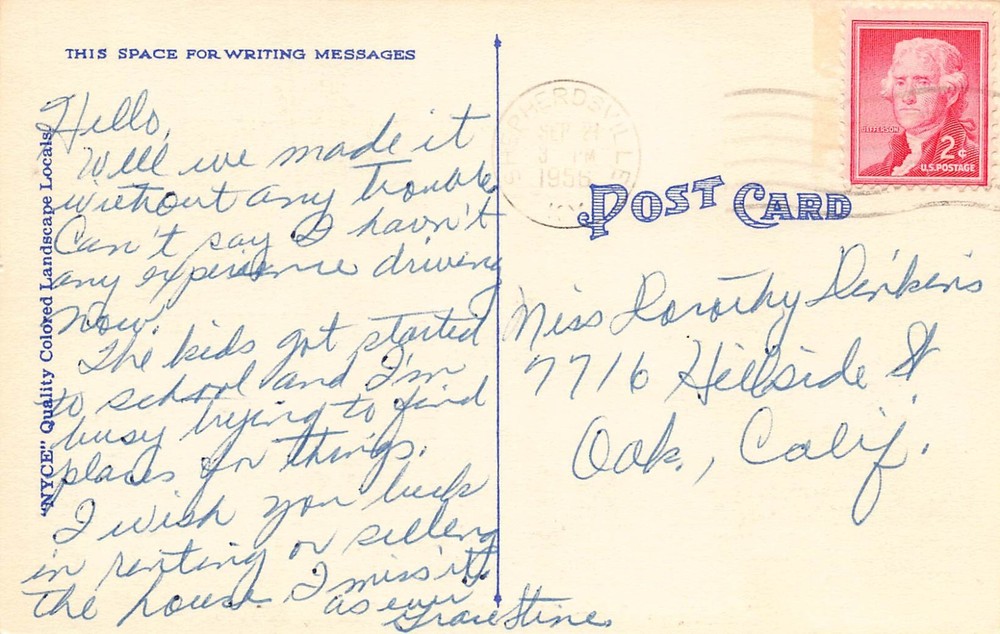 THIS SPACE FOR WRITING MESSAGES
"NYCE" Quality Colored Landscape Locals
Hello,
Well we made it
without any trouble
Can't say I havn't
any experience driving
now.
The kids got started
to school and I'm
busy trying to find
places for things.
I wish you luck
in renting or selling
the house I miss it.
as ever
Grace Stine
SHEPHERDSVILLE
SEP 21
3 PM
1956
KY.
JEFFERSON
2¢
U.S. POSTAGE
POST CARD
Miss Dorothy Dinkins
7716 Hillside St
Oak., Calif.